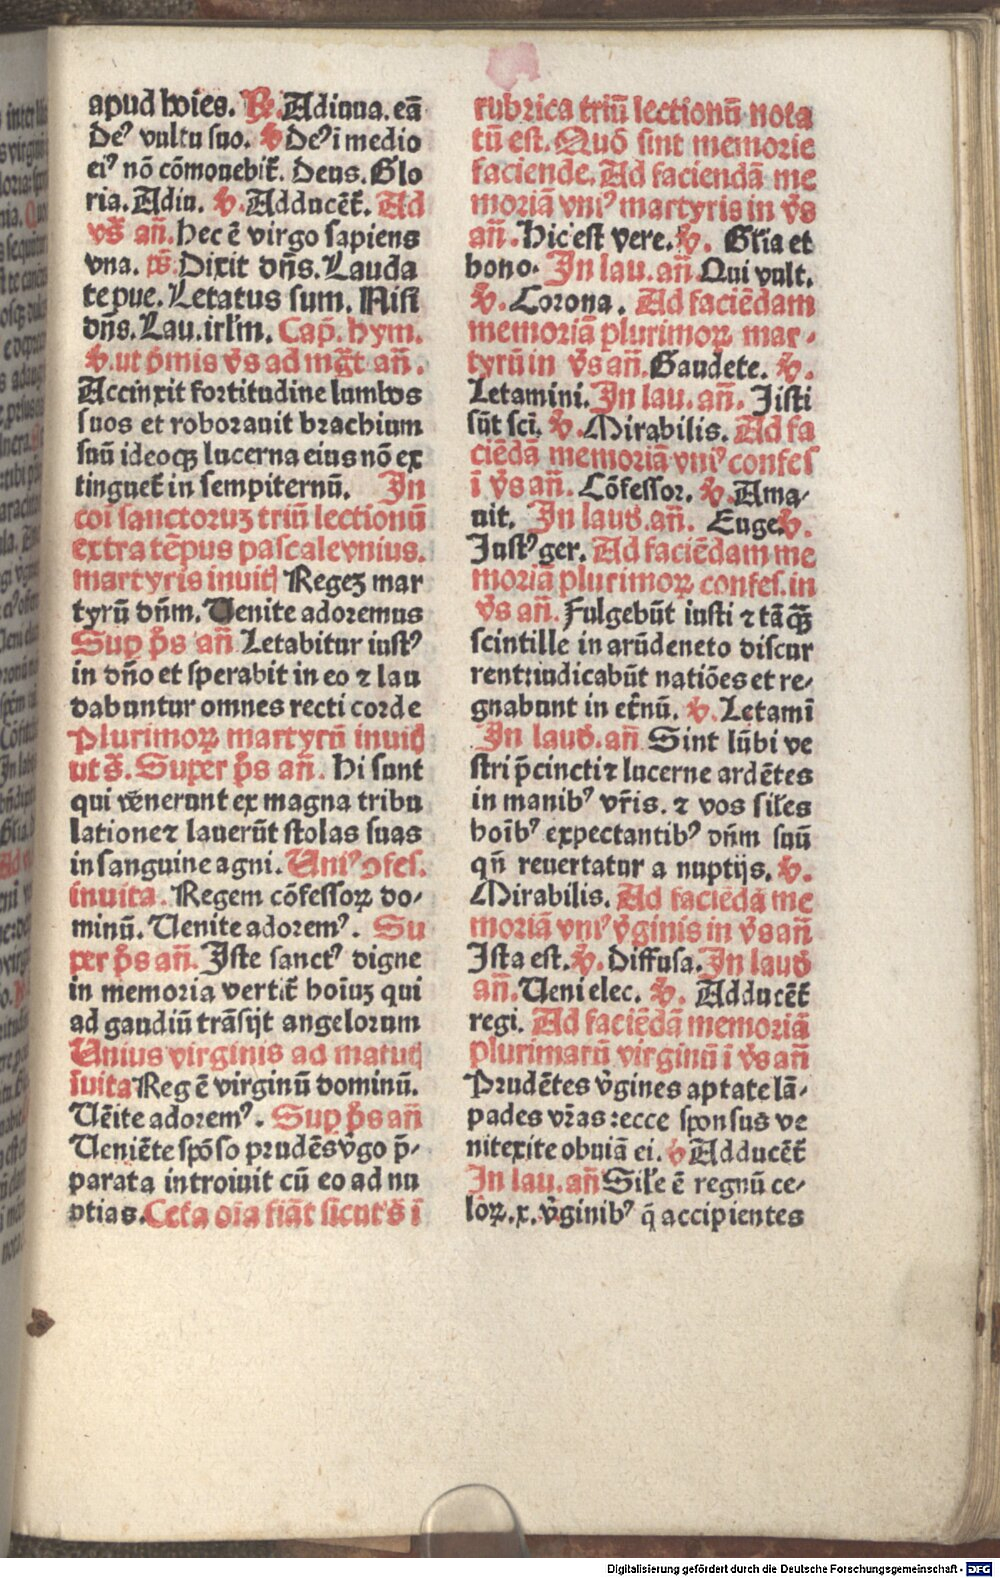 apud hoies. R. Adiuua. eā
deꝰ vultu suo. ℣ deꝰ ī medio
eiꝰ nō cōmouebit̄. Deus. Glo
ria. Adiu. ℣. Adducēt̄. Ad
vs̄ an̄. Hec ē virgo sapiens
vna. ps̄. Dixit dn̄s. Lauda
te pue. Letatus sum. Nisi
dn̄s. Lau. irl̄m. Cap̄. hym.
℣. ut ōmis vs̄ ad mgt̄ an̄.
Accinxit fortitudine lumbos
suos et roborauit brachium
suū ideoqꝫ lucerna eius nō ex
tinguet̄ in sempiternū. In
coī sanctoruꝫ triū lectionū
extra tēpus pascale vnius.
martyris inuit̄ Regeꝫ mar
tyrū dn̄m. Uenite adoremus
Sup p̄s an̄ Letabitur iustꝰ
in dn̄o et sperabit in eo ⁊ lau
dabuntur omnes recti corde
Plurimoꝝ martyrū inuit̄
ut s̄. Super p̄s an̄. Hi sunt
qui vēnerunt ex magna tribu
latione ⁊ lauerūt stolas suas
in sanguine agni. Uniꝰ ↄfes.
inuita. Regem cōfessoꝝ do⸗
minū. Uenite adoremꝰ. Su
per p̄s an̄. Iste sanctꝰ digne
in memoria vertit̄ hoīuꝫ qui
ad gaudiū trāsijt angelorum
Unius virginis ad matut̄
īuita Reg ē virginū dominū.
Uēite adoremꝰ. Sup p̄s an̄
Ueniēte spōso prudēs v̄go p̄⸗
parata introiuit cū eo ad nu
ptias. Cet̄a oīa fiāt sicut s̄ ī
rubrica triū lectionū nota
tū est. Quō sint memorie
faciende. Ad faciendā me
moriā vniꝰ martyris in vs̄
an̄. Hic est vere. ℣. Gl̄ia et
hono. In lau. an̄ Qui vult.
℣. Corona. Ad faciēdam
memoriā plurimoꝝ mar⸗
tyrū in vs̄ an̄. Gaudete. ℣.
Letamini. In lau. an̄. Iusti
sūt sci. ℣. Mirabilis. Ad fa
ciēdā memoriā vniꝰ confes
ī vs̄ an̄. Cōfessor. ℣. Ama⸗
uit. In laud̄. an̄. Euge ℣.
Iustꝰ ger. Ad faciēdam me
moriā plurimoꝝ confes. in
vs̄ an̄. Fulgebūt iusti ⁊ tāqꝫ
scintille in arūdeneto discur
rent: iudicabūt natiōes et re⸗
gnabunt in et̄nū. ℣. Letamī
In laud̄. an̄ Sint lūbi ve
stri p̄cincti ⁊ lucerne ardētes
in manibꝰ vr̄is. ⁊ vos sil̄es
hoībꝰ expectantibꝰ dn̄m suū
qn̄ reuertatur a nuptijs. ℣.
Mirabilis. Ad faciēdā me
moriā vniꝰ v̄ginis in vs̄ an̄
Ista est. ℣. Diffusa. In laud̄
an̄. Ueni elec. ℣. Adducēt̄
regi. Ad faciēdā memoriā
plurimarū virginū ī vs̄ an̄
Prudētes v̄gines aptate lā⸗
pades vr̄as: ecce sponsus ve
nit exite obuiā ei. ℣ Adducēt̄
In lau. an̄ Sil̄e ē regnū ce⸗
loꝝ. x. v̄ginibꝰ q̄ accipientes
Digitalisierung gefördert durch die Deutsche Forschungsgemeinschaft - DFG